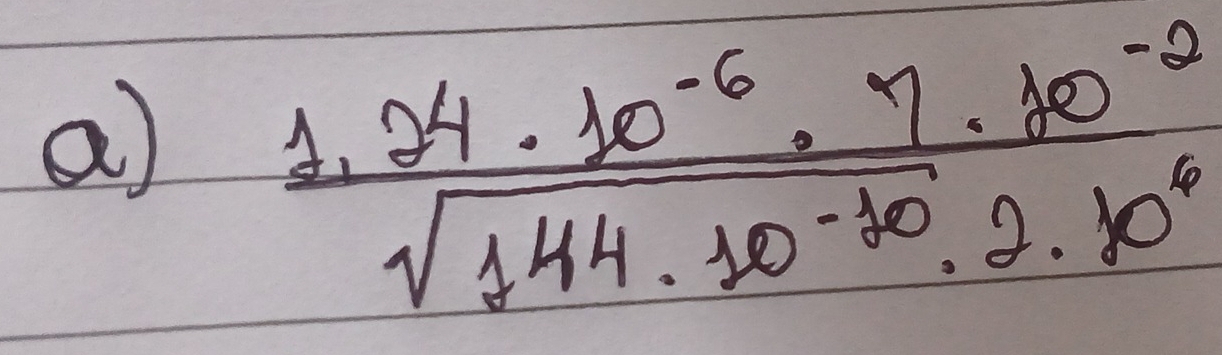 a) 1,24 . 10^-6 . 7 . 10^-2
√144 . 10^-10 . 2 . 10^6